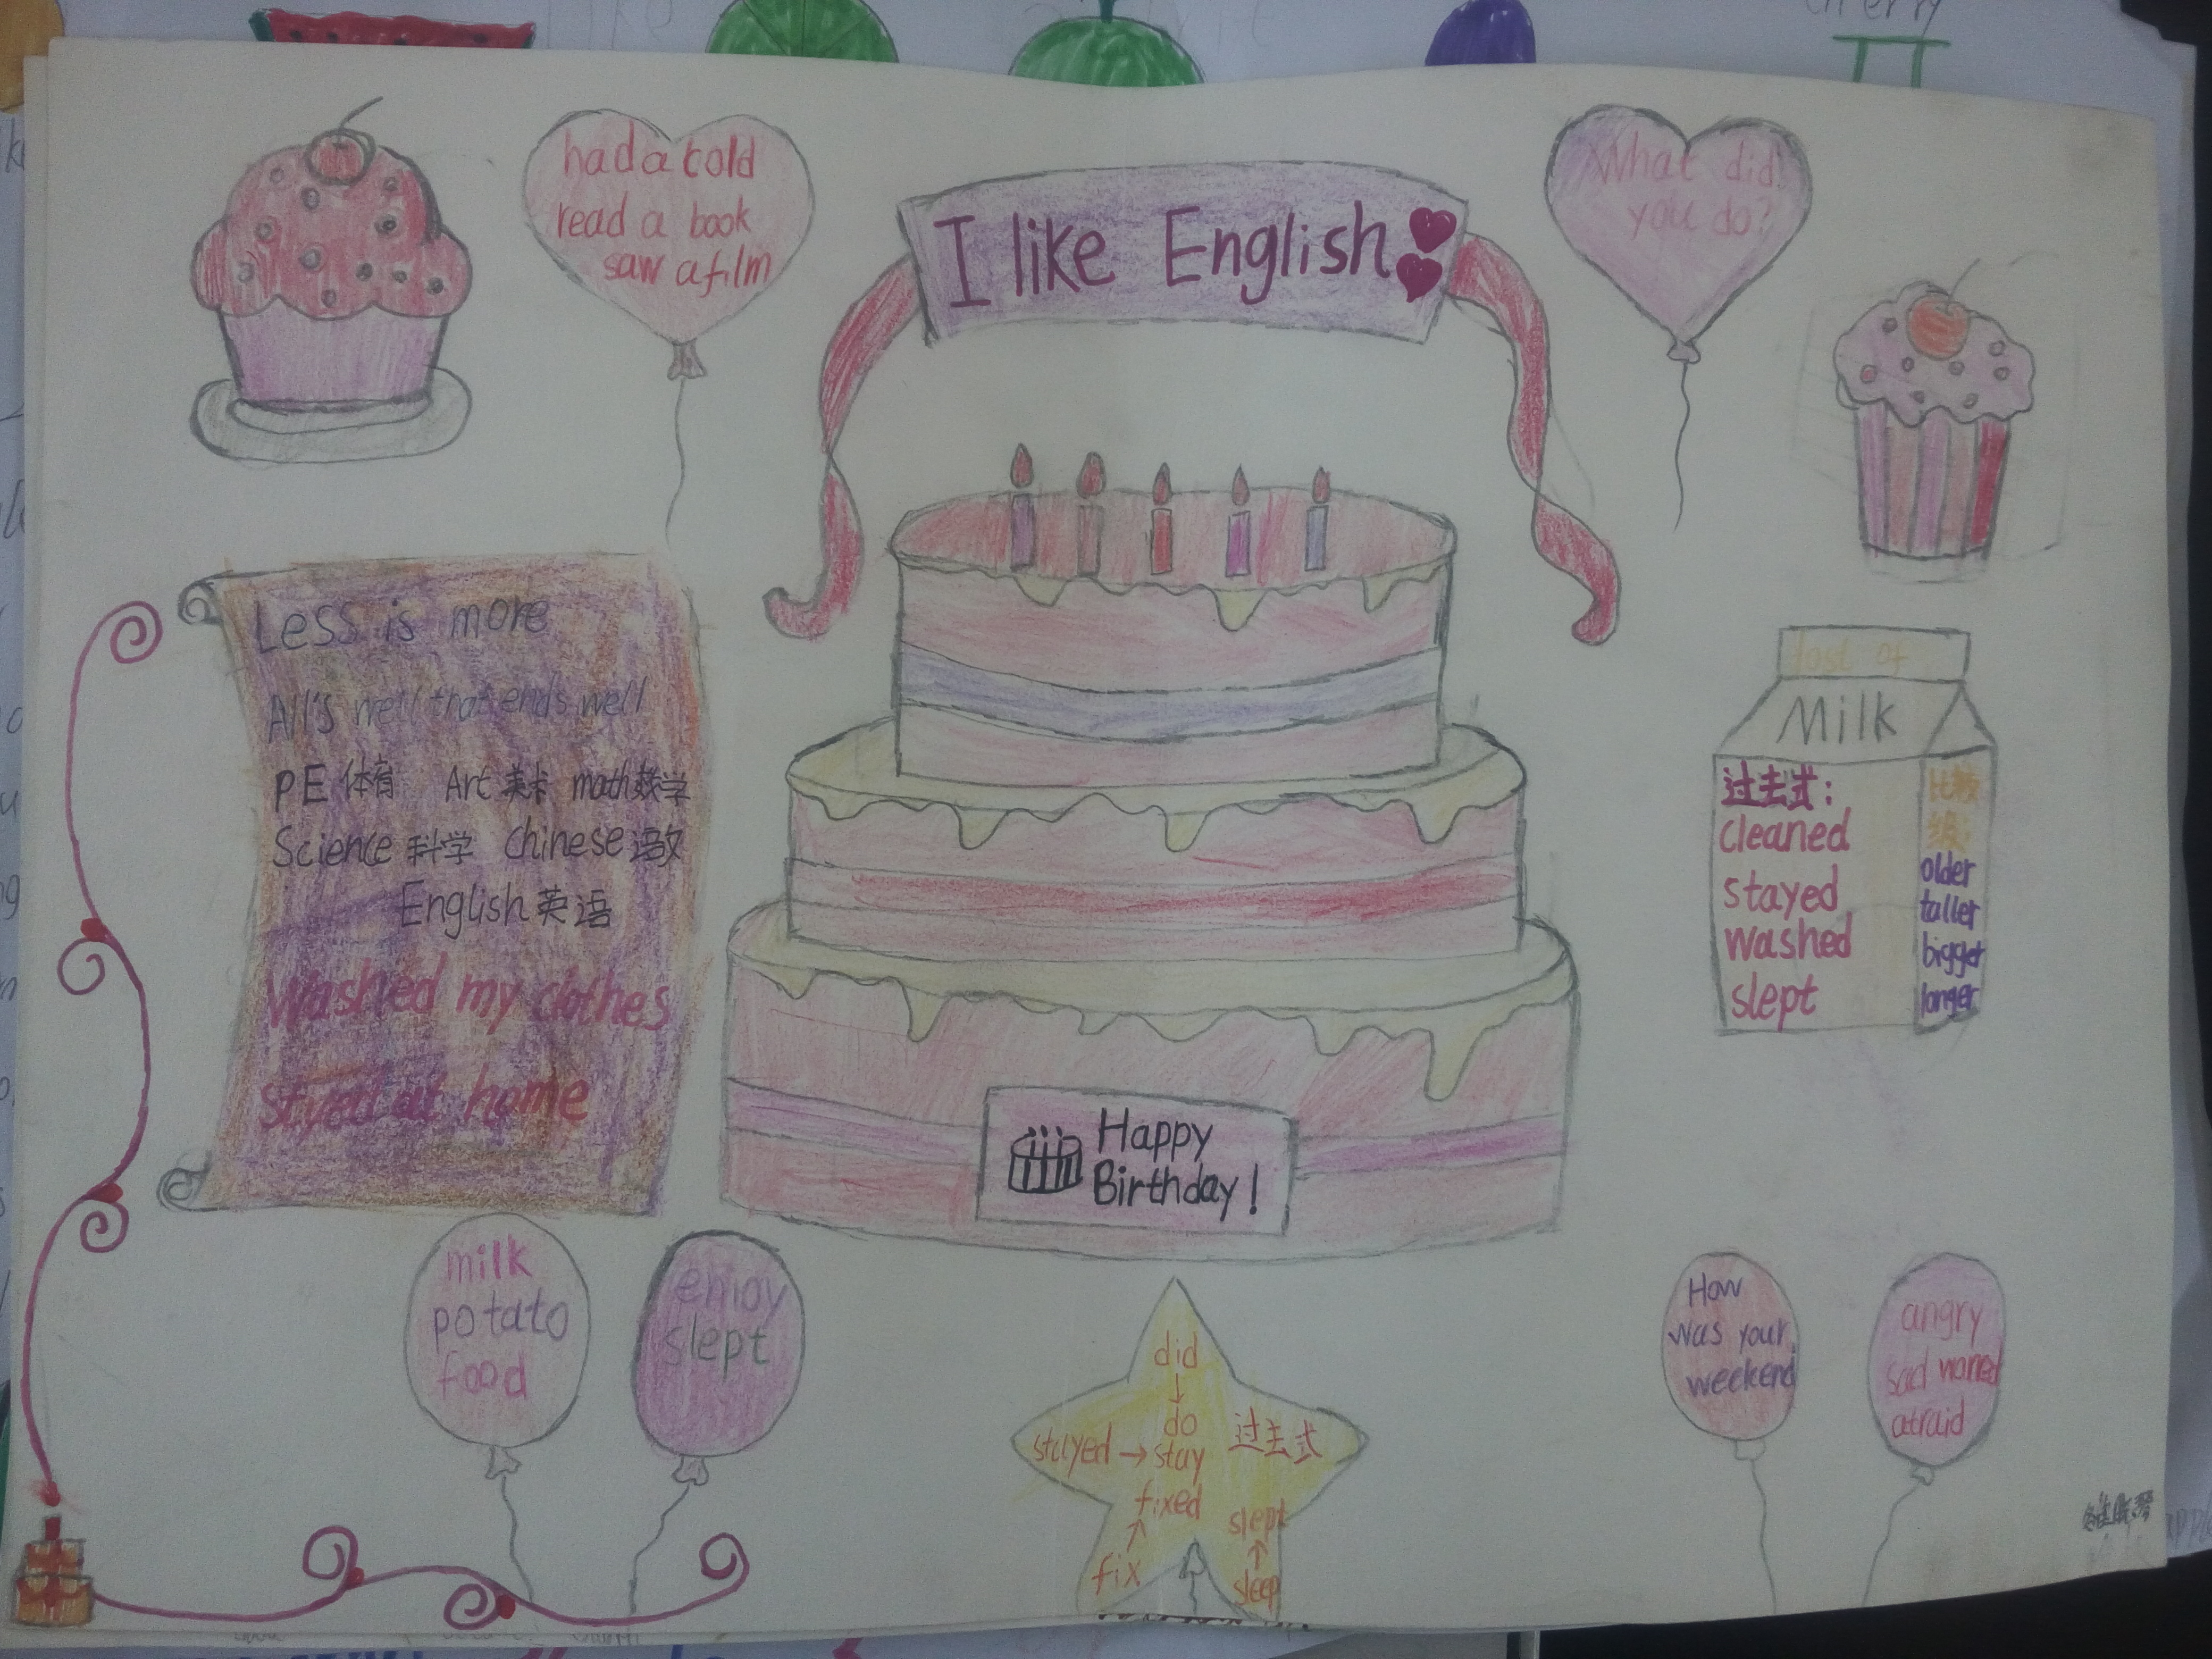 had a cold
read a book
saw a film
I like English
What did
you do?
Less is more
All's well that ends well
PE 体育 Art 美术 math 数学
Science 科学 Chinese 语文
English 英语
Washed my clothes
styed at home
Happy
Birthday!
lost of
Milk
过去式:
cleaned
stayed
washed
slept
比较
级:
older
taller
bigger
longer
milk
potato
food
enjoy
slept
did
↓
do
stayed → stay
过去式
fixed
↑
fix
slept
↑
sleep
How
was your
weekend
angry
sad worried
afraid